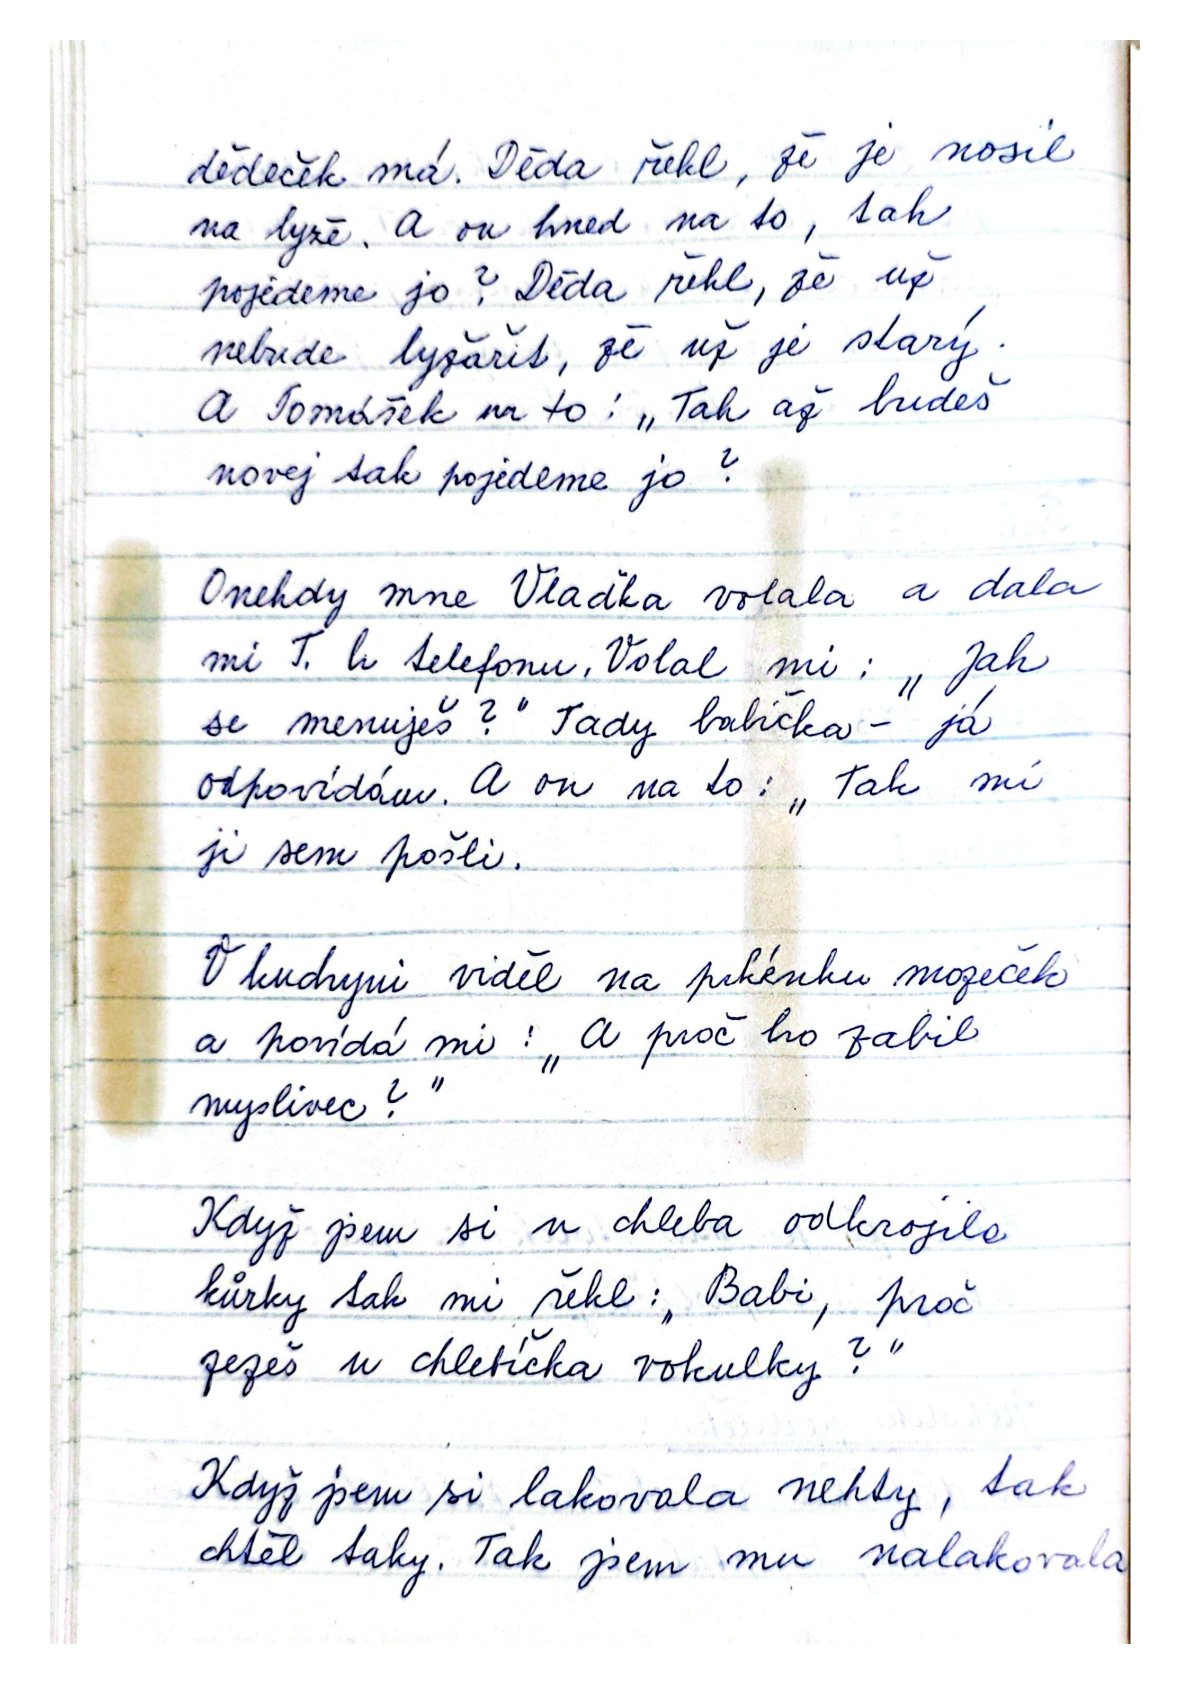 dědeček má. Děda řekl, že je nosil
na lyže. A on hned na to, tak
pojedeme jo? Děda řekl, že už
nebude lyžařit, že už je starý.
A Tomášek na to: „Tak až budeš
novej tak pojedeme jo?
Onehdy mne Vlaďka volala a dala
mi T. k telefonu. Volal mi: „Jak
se menuješ?" Tady babička – já
odpovídám. A on na to: „Tak mi
ji sem pošli.
V kuchyni viděl na prkénku mozeček
a povídá mi: „A proč ho zabil
myslivec?"
Když jsem si u chleba odkrojila
kůrky tak mi řekl: „Babi, proč
zezeš u chlebíčka vokulky?"
Když jsem si lakovala nehty, tak
chtěl taky. Tak jsem mu nalakovala